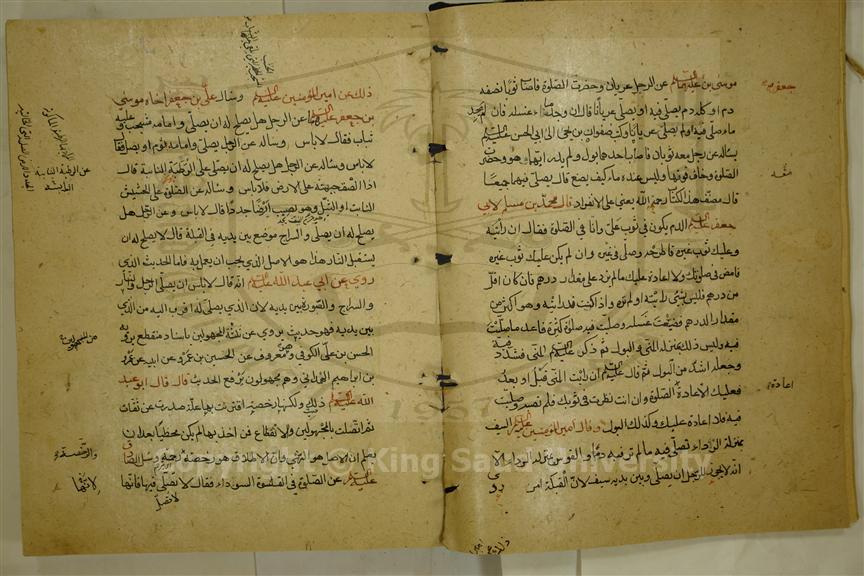 موسى بن جعفر عليه السلام عن الرجل عريان وحضرت الصلوة فاصاب ثوبا نصفه
دم او كله دم يصلي فيه او يصلي عريانا قال ان وجد ماء غسله فان لم يجد
ماء صلى فيه ولم يصل عريانا وكتب صفوان بن يحيى الى ابي الحسن عليه السلام
يسأله عن رجل معه ثوبان فاصاب احدهما بول ولم يدر ايهما هو وحضرت
الصلوة وخاف فوتها وليس عنده ماء كيف يصنع قال يصلي فيهما جميعا
قال مصنف هذا الكتاب رحمه الله يعني على الانفراد قال محمد بن مسلم لابي
جعفر عليه السلام الدم يكون في ثوب علي وانا في الصلوة فقال ان رأيته
وعليك ثوب غيره فاطرحه وصل في غيره وان لم يكن عليك ثوب غيره
فامض في صلوتك ولا اعادة عليك ما لم يزد على مقدار درهم فان كان اقل
من درهم فليس بشئ رأيته او لم تره واذا كنت قد رأيته وهو اكثر من
مقدار الدرهم فضيعت غسله وصليت فيه صلوة كثيرة فاعد ما صليت
فيه وليس ذلك بمنزلة المني والبول ثم ذكر عليه السلام المني فشدد فيه
وجعله اشد من البول ثم قال عليه السلام ان رأيت المني قبل او بعد
فعليك الاعادة الصلوة وان انت نظرت في ثوبك فلم تصبه وصليت
فيه فلا اعادة عليك وكذلك البول وقال امير المؤمنين عليه السلام السيف
بمنزلة الرداء تصلي فيه ما لم تر فيه دما والقوس بمنزلة الرداء الا
انه لا يجوز للرجل ان يصلي وبين يديه سيف لان القبلة امن
روي
جعفر
اعادة
ذلك عن امير المؤمنين عليه السلام وسأله علي بن جعفر اخاه موسى
بن جعفر عليه السلام عن الرجل هل يصلح له ان يصلي وامامه مشجب وعليه
ثياب فقال لا باس وسأله عن الرجل يصلي وامامه ثوم او بصل قال
لا باس وسأله عن الرجل هل يصلح له ان يصلي على الرطبة النابتة قال
اذا الصق جبهته على الارض فلا باس وسأله عن الصلوة على الحشيش
النابت او الثيل وهو يصيب ارضا جددا قال لا باس وعن الرجل هل
يصلح له ان يصلي والسراج موضع بين يديه في القبلة قال لا يصلح له ان
يستقبل النار هذا هو الاصل الذي يجب ان يعمل به فاما الحديث الذي
روي عن ابي عبد الله عليه السلام انه قال لا باس ان يصلي الرجل والنار
والسراج والصورة بين يديه لان الذي يصلي له اقرب اليه من الذي
بين يديه فهو حديث يروي عن ثلثة المجهولين باسناد منقطع يرويه
الحسن بن علي الكوفي وهو معروف عن الحسين بن عمرو عن ابيه عن عمرو
بن ابراهيم الهمداني وهم مجهولون يرفع الحديث قال قال ابو عبد
الله عليه السلام ذلك ولكنها رخصة اقترنت بها علة صدرت عن ثقات
ثم اتصلت بالمجهولين والانقطاع فمن اخذ بها لم يكن مخطيا بعد ان
يعلم ان الاصل هو النهي وان الاطلاق هو رخصة ورحمة وسئل الصادق
عليه السلام عن الصلوة في القلنسوة السوداء فقال لا تصل فيها فانها
عن الرطبة النابتة
من المجهولين